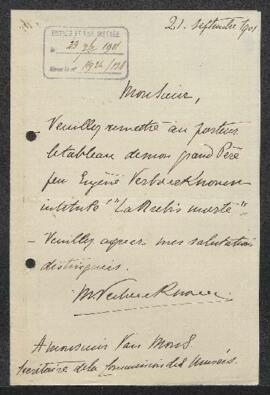 21. septembre 1901
ENTRÉE ET AN. MUSÉES
23 1901
1924/128
Monsieur,
Veuillez remettre au porteur
le tableau de mon grand Père
feu Eugène Verboeckhoven
intitulé "La Brebis morte"
Veuillez agréer mes salutations
distinguées.
Verboeckhoven
A monsieur Van Mons
Secrétaire de la Commission des Musées.